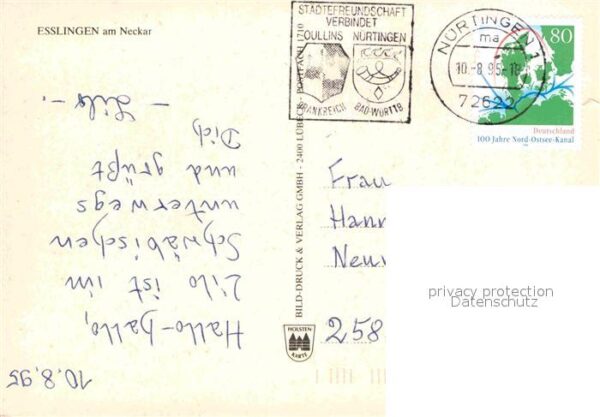 ESSLINGEN am Neckar
10.8.95
Hallo-hallo,
Lilo ist im
Schwäbischen
unterwegs
und grüßt
Dich
– Lilo –.
BILD-DRUCK & VERLAG GMBH - 2400 LÜBECK - POSTFACH 1710
HOLSTEN
KARTE
STÄDTEFREUNDSCHAFT
VERBINDET
OULLINS NÜRTINGEN
FRANKREICH BAD-WÜRTTB
NÜRTINGEN 1
ma
10.-8.95-18
72622
80
Deutschland
100 Jahre Nord-Ostsee-Kanal
Frau
Hann
Neu
258
privacy protection
Datenschutz